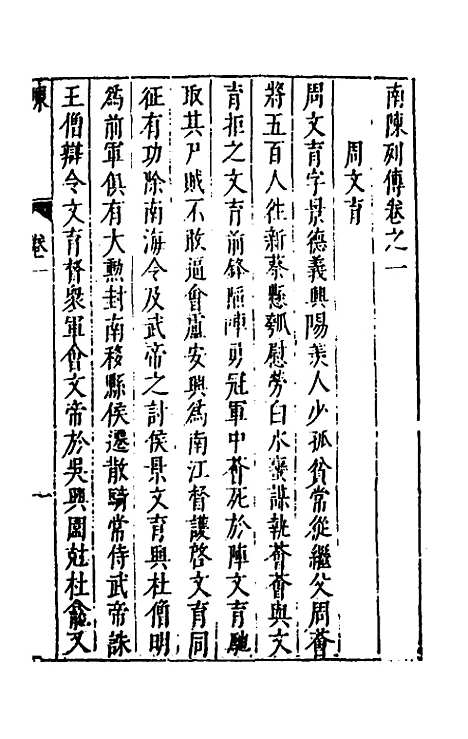 南陳列傳卷之一
周文育
周文育字景德義興陽羨人少孤貧常從繼父周薈
將五百人往新蔡懸瓠慰勞白水蠻謀執薈薈與文
育拒之文育前鋒陷陣勇冠軍中薈死於陣文育馳
取其尸賊不敢逼會盧安興為南江督護啓文育同
征有功除南海令及武帝之討侯景文育與杜僧明
為前軍俱有大勲封南移縣侯遷散騎常侍武帝誅
王僧辯令文育督衆軍會文帝於吳興圍尅杜龕又
陳
卷一
一